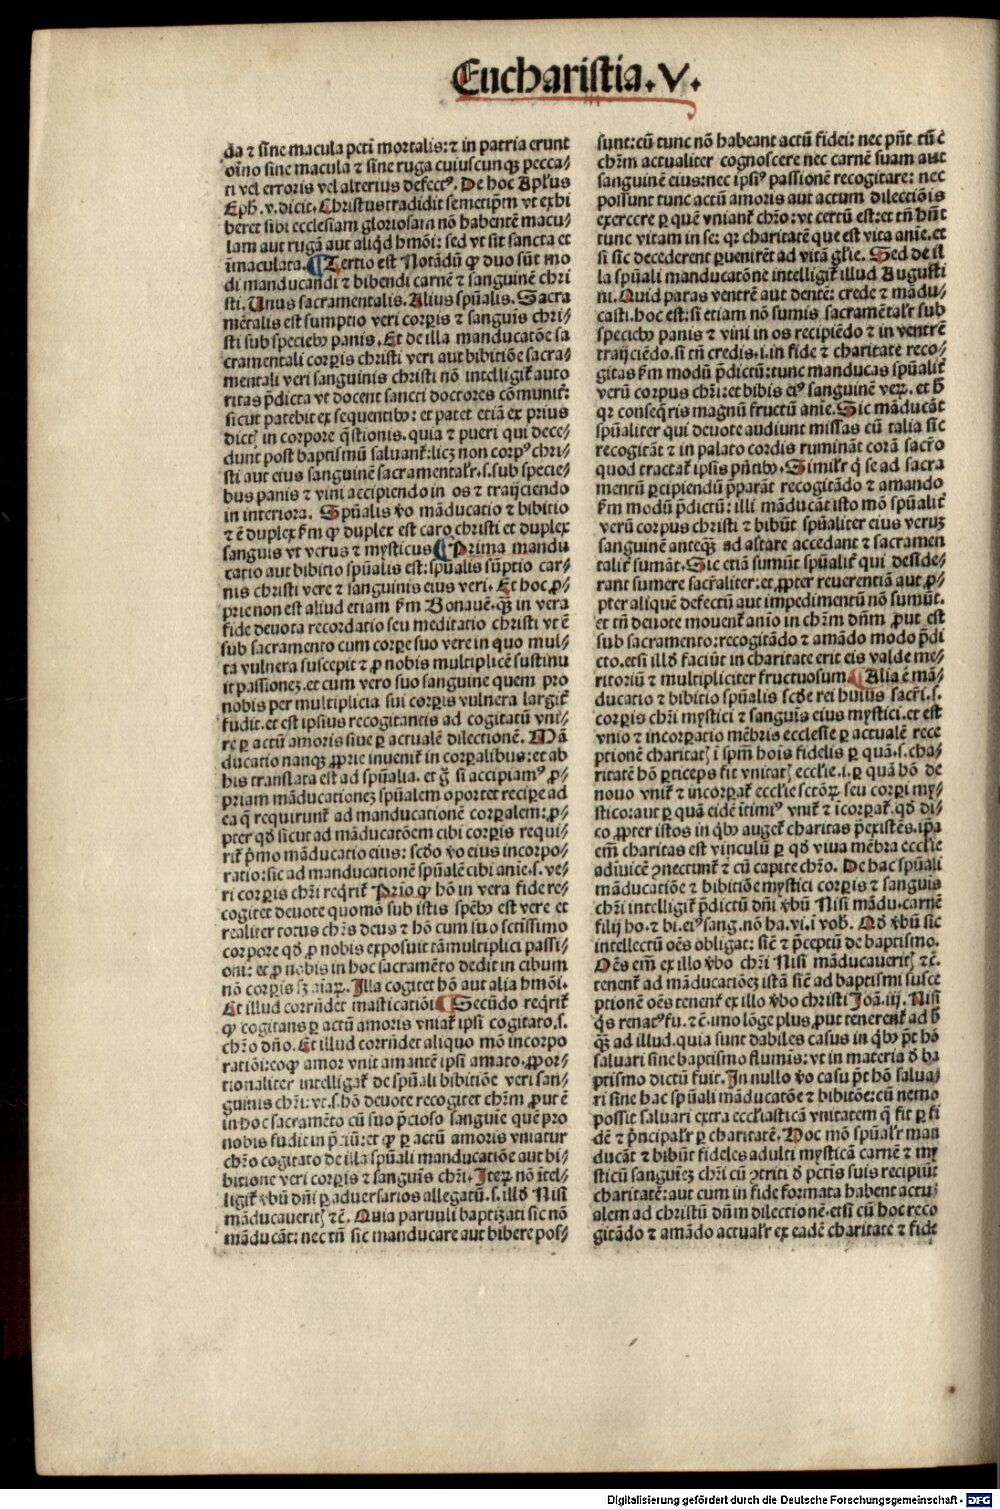 Eucharistia.V.
da ⁊ sine macula pctī mortalis:⁊ in patria erunt
oīno sine macula ⁊ sine ruga cuiuscunqꝫ pecca⸗
ti vel erroris vel alterius defectꝰ. De hoc Aplus
Eph.v.dicit. Christus tradidit semetipm vt exhi
beret sibi ecclesiam gloriosam nō habentē macu⸗
lam aut rugā aut aliqd hmōi: sed vt sit sancta et
īmaculata. ¶Tertio est Notādū ꝙ duo sūt mo
di manducandi ⁊ bibendi carnē ⁊ sanguinē chri
sti. Unus sacramentalis. Alius spūalis. Sacra
mētalis est sumptio veri corꝑis ⁊ sanguīs chri⸗
sti sub speciebꝰ panis. Et de illa manducatōe sa
cramentali corꝑis christi veri aut bibitiōe sacra⸗
mentali veri sanguinis christi nō intelligit᷑ aucto
ritas p̄dicta vt docent sancti doctores cōmunit᷑:
sicut patebit ex sequentibꝰ: et patet etiā ex prius
dictꝭ in corpore q̄stionis. quia ⁊ pueri qui dece⸗
dunt post baptismū saluant᷑:licꝫ non corpꝰ chri⸗
sti aut eius sanguinē sacramentalr̄.s.sub specie⸗
bus panis ⁊ vini accipiendo in os ⁊ traijciendo
in interiora. Spūalis v̊o māducatio ⁊ bibitio
⁊ ē duplex ẜm ꝙ duplex est caro christi et duplex
sanguis vt verus ⁊ mysticus ¶Prima mandu
catio aut bibitio spūalis est: spūalis sūptio car⸗
nis christi vere ⁊ sanguinis eius veri. Et hoc ꝓ⸗
prie non est aliud etiam ẜm Bonauē. qꝫ in vera
fide deuota recordatio seu meditatio christi vt ē
sub sacramento cum corpe suo vere in quo mul⸗
ta vulnera suscepit ⁊ ꝓ nobis multiplicē sustinu
it passionez.et cum vero suo sanguine quem pro
nobis per multiplicia sui corꝑis vulnera largit᷑
fudit.et est ipsius recogitantis ad cogitatū vni⸗
re ꝑ actū amoris siue ꝑ actualē dilectionē. Mā
ducatio nanqꝫ ꝓprie inuenit᷑ in corꝑalibus:et ab
his translata est ad spūalia. et g̊ si accipiamꝰ ꝓ⸗
priam māducationez spūalem oportet recipe ad
ea q̄ requirunt᷑ ad manducationē corꝑalem:ꝓ⸗
pter qd̄ sicut ad māducatōem cibi corꝑis requi⸗
rit᷑ pꝰmo māducatio eius: scd̄o v̊o eius incorpo⸗
ratio:sic ad manducationē spūalē cibi anie.s.ve⸗
ri corꝑis chri reqrit᷑ Prio ꝙ hō in vera fide re⸗
cogitet deuote quomō sub istis spēbꝰ est vere et
realiter totus chrs deus ⁊ hō cum suo sctissimo
corpore qd̄ ꝓ nobis exposuit tā multiplici passi⸗
oni: et ꝓ nobis in hoc sacramēto dedit in cibum
nō corꝑis sꝫ aiaꝝ. Illa cogitet hō aut alia hmōi.
Et illud corrn̄det masticatiōi ¶Secūdo reqrit᷑
ꝙ cogitans ꝑ actū amoris vniat᷑ ipsi cogitato.s.
chro dn̄o. Et illud corrn̄det aliquo mō incorpo
ratiōi:eoꝙ amor vnit amantē ipsi amato. ꝓpor⸗
tionaliter intelligat᷑ de spūali bibitiōe veri san⸗
guinis chri:vt.s.hō deuote recogitet chrm ꝓut ē
in hoc sacramēto cū suo p̄cioso sanguie quē pro
nobis fudit in p̄ciū:et ꝙ ꝑ actū amoris vniatur
chro cogitato de illa spūali manducatiōe aut bi⸗
bitione veri corꝑis ⁊ sanguīs chri. Iteꝝ nō ītel⸗
ligit᷑ v̊bū dn̄i ꝑ aduersarios allegatū.s.illd̄ Nisi
māducaueritꝭ ⁊c̄. Quia paruuli baptizati sic nō
māducāt: nec tn̄ sic manducare aut bibere pos⸗
sunt:cū tunc nō habeant actū fidei: nec pn̄t tūc
chrm actualiter cognoscere nec carnē suam aut
sanguinē eius:nec ipsiꝰ passionē recogitare: nec
possunt tunc actū amoris aut actum dilectiōis
exercere ꝑ quē vniant᷑ chro:vt certū est:et tn̄ hn̄t
tunc vitam in se: qr charitatē que est vita anie.et
si sic decederent ꝑuenirēt ad vitā glie. Sed de il
la spūali manducatōne intelligit᷑ illud Augusti
ni. Quid paras ventrē aut dentē: crede ⁊ mādu⸗
casti.hoc est:si etiam nō sumis sacramētalr̄ sub
speciebꝰ panis ⁊ vini in os recipiēdo ⁊ in ventrē
traijciēdo.si tn̄ credis.i.in fide ⁊ charitate reco⸗
gitas ẜm modū p̄dictū:tunc manducas spūalit᷑
verū corpus chri:et bibis eiꝰ sanguinē veꝝ. et h̄
qr conseq̄ris magnū fructū anie. Sic māducāt
spūaliter qui deuote audiunt missas cū talia sic
recogitāt ⁊ in palato cordis rumināt corā sacro
quod tractat᷑ ipsis pn̄tibꝰ. Similr̄ q̄ se ad sacra
mentū ꝑcipiendū p̄parāt recogitādo ⁊ amando
ẜm modū p̄dictū: illi māducāt isto mō spūalit᷑
verū corpus christi ⁊ bibūt spūaliter eius veruꝫ
sanguinē anteqꝫ ad altare accedant ⁊ sacramen
talit᷑ sumāt. Sic etiā sumūt spūalit᷑ qui deside⸗
rant sumere sacralīter:et ꝓpter reuerentiā aut ꝓ⸗
pter aliquē defectū aut impedimentū nō sumūt.
et tn̄ deuote mouent᷑ anīo in chrm dn̄m ꝓut est
sub sacramento:recogitādo ⁊ amādo modo p̄di
cto.et si illd̄ faciūt in charitate erit eis valde me⸗
ritoriū ⁊ multipliciter fructuosum. ¶Alia ē mā⸗
ducatio ⁊ bibitio spūalis scd̄e rei huius sacri.s.
corꝑis chri mystici ⁊ sanguīs eius mystici.et est
vnio ⁊ incorꝑatio mēbris ecclesie ꝑ actualē rece
ptionē charitatꝭ ī spm̄ hois fidelis ꝑ quā.s.cha⸗
ritatē hō ꝑticeps fit vnitatꝭ eccl̄ie.i.ꝑ quā hō de
nouo vnit᷑ ⁊ incorꝑat᷑ eccl̄ie sctoꝝ seu corpi my⸗
stico:aut ꝑ quā eidē ītimiꝰ vnit᷑ ⁊ īcorꝑat᷑. qd̄ di⸗
co ꝓpter istos in q̄bꝰ auget᷑ charitas p̄existēs.ipa
em̄ charitas est vinculū ꝑ qd̄ viua mēbra eccl̄ie
adīuicē ꝯnectunt᷑ ⁊ cū capite chro. De hac spūali
māducatiōe ⁊ bibitiōe mystici corꝑis ⁊ sanguīs
chri intelligit᷑ p̄dictū dn̄i v̊bū Nisi mādu.carnē
filij ho.⁊ bi.eiꝰ sang.nō ha.vi.ī vob̄. Qd̄ v̊bū sic
intellectū oēs obligat: sic̄ ⁊ p̄ceptū de baptismo.
Oēs em̄ ex illo v̊bo chri Nisi māducaueritꝭ ⁊c̄.
tenent᷑ ad māducatiōeꝫ istā sic̄ ad baptismi susce
ptionē oēs tenent᷑ ex illo v̊bo christi Joā.iij. Nisi
q̄s renatꝰ fu.⁊c̄.imo lōge plus ꝓut tenerent᷑ ad h̄
qꝫ ad illud.quia sunt dabiles casus in q̄bꝰ p̄t hō
saluari sine baptismo flumīs:vt in materia d̄ ba
ptismo dictū fuit. In nullo v̊o casu p̄t hō salua⸗
ri sine hac spūali māducatōe ⁊ bibitōe:cū nemo
possit saluari extra eccl̄iasticā vnitatem q̄ fit ꝑ fi
dē ⁊ p̄ncipalr̄ ꝑ charitatē. Hoc mō spūalr̄ man
ducāt ⁊ bibūt fideles adulti mysticā carnē ⁊ my
sticū sanguīeꝫ chri cū ꝯtriti d̄ pctīs suis recipiūt
charitatē:aut cum in fide formata habent actu⸗
alem ad christū dn̄m dilectionē.et si cū hoc reco
gitādo ⁊ amādo actualr̄ ex eadē charitate ⁊ fide
Digitalisierung gefördert durch die Deutsche Forschungsgemeinschaft - DFG